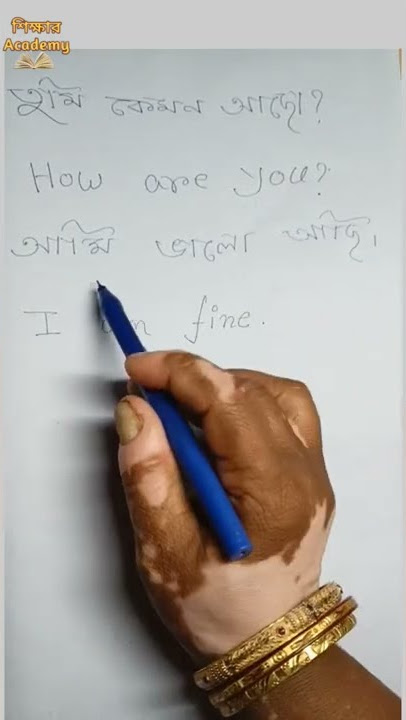 শিক্ষার
Academy
তুমি কেমন আছো?
How are you?
আমি ভালো আছি।
I am fine.